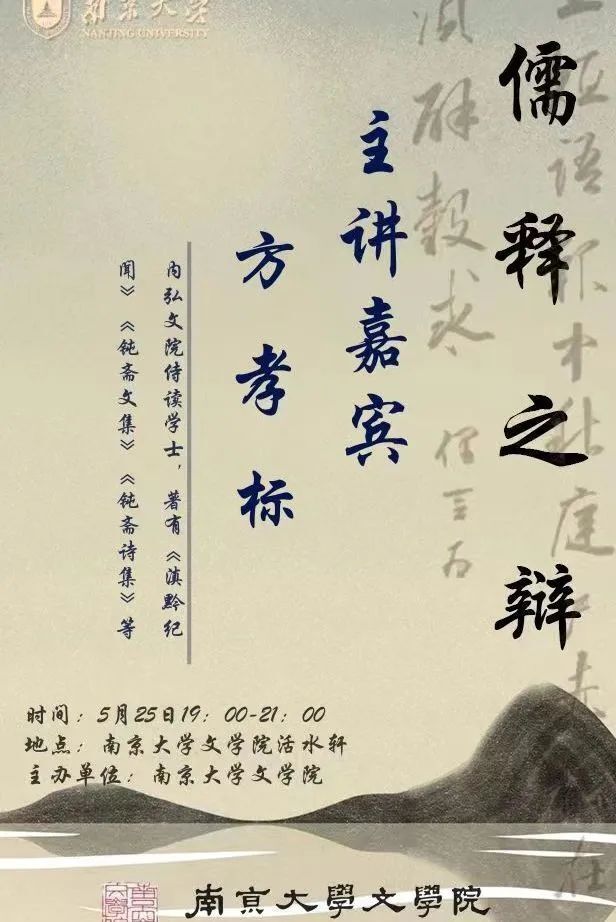 南京大学
NANJING UNIVERSITY
儒释之辩
主讲嘉宾
方孝标
内弘文院侍读学士,著有《滇黔纪
闻》《钝斋文集》《钝斋诗集》等
时间:5月25日19:00-21:00
地点:南京大学文学院活水轩
主办单位:南京大学文学院
南京大學文學院